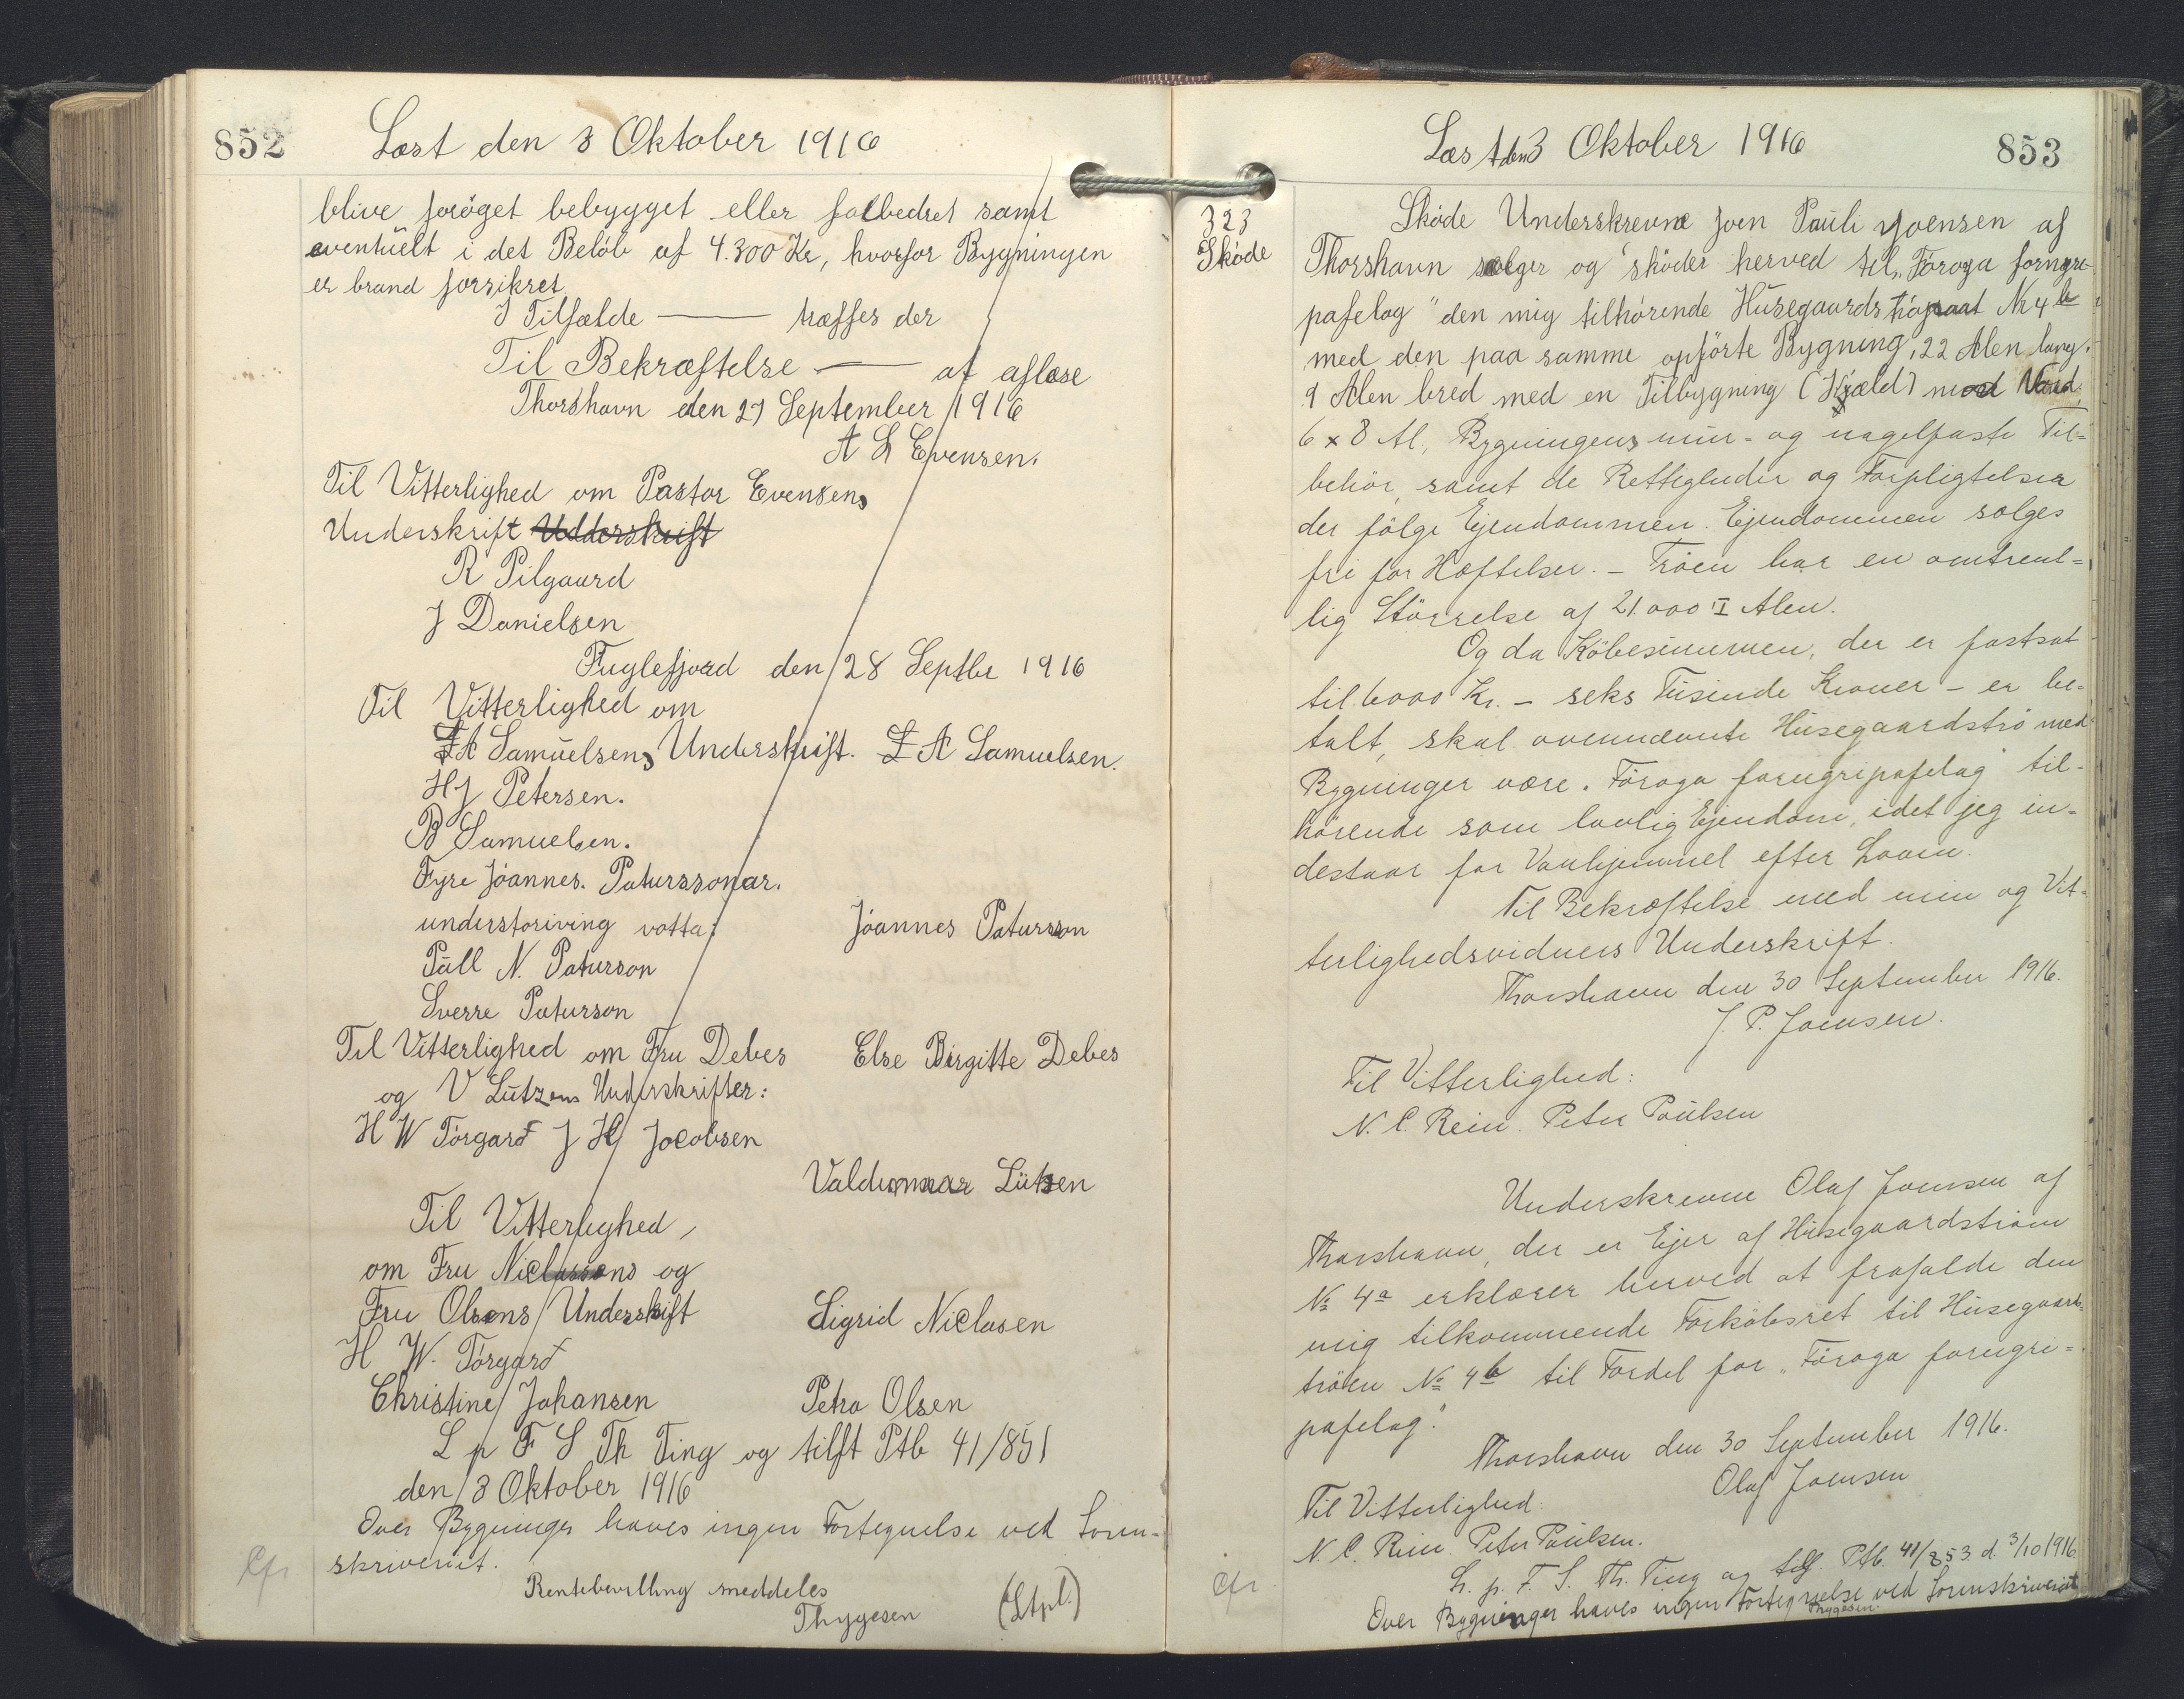 852
Læst den 3 Oktober 1916
blive forøget bebygget eller forbedret samt
eventuelt i det Beløb af 4.300 Kr, hvorfor Bygningen
er brand forsikret.
I Tilfælde — træffes der
Til Bekræftelse — at aflæse
Thorshavn den 27 September 1916
A L Evensen.
Til Vitterlighed om Pastor Evensens
Underskrift Udderskrift
R Pilgaard
J Danielsen
Fuglefjord den 28 Septbr 1916
Til Vitterlighed om
L A Samuelsens Underskrift. L A Samuelsen.
H J Petersen.
B Samuelsen.
Fyre Jóannes. Paturssonar.
understoriving votta: Jóannes Patursson
Páll N. Paturson
Sverre Paturson
Til Vitterlighed om Fru Debes Else Birgitte Debes
og V Lützens Underskrifter:
H W Tórgarð J H Jacobsen
Valdemar Lützen
Til Vitterlighed,
om Fru Niclassens og
Fru Olsens Underskift Sigrid Niclasen
H W. Tórgarð
Christine Johansen Petra Olsen
L p F S Th Ting og tilft Ptb 41/851
den 3 Oktober 1916
Over Bygninger haves ingen Fortegnelse ved Soren-
skriveriet.
Cfr
Rentebevilling meddeles
Thygesen (Stpl.)
Læst den 3 Oktober 1916
853
323
Skøde
Skøde Underskrevne Joen Pauli Joensen af
Thorshavn sælger og skøder herved til „Føroya forngri-
pafelag" den mig tilhørende Husegaards trøpaat Nr 4 b
med den paa samme opførte Bygning, 22 Alen lang.
9 Alen bred med en Tilbygning (Kjæld) mod Nord
6 x 8 Al., Bygningens mur- og nagelfaste Til=
behør, samt de Rettigheder og Forpligtelser
der følge Ejendommen. Ejendommen sælges
fri for Hæftelser. – Trøen har en omtrent=
lig Størrelse af 21.000 □ Alen.
Og da Købesummen, der er fastsat
til 6000 Kr. – seks Tusinde Kroner – er be=
talt, skal ovennævnte Husegaardstrø med
Bygninger være „Føroya forngripafelag" til-
hørende som lovlig Ejendom, idet jeg in-
destaar for Vanhjemmel efter Loven.
Til Bekræftelse med min og Vit-
terlighedsvidners Underskrift.
Thorshavn den 30 September 1916.
J. P. Joensen.
Til Vitterlighed:
N. C. Rein. Peter Poulsen
Underskrevne Olaf Joensen af
Thorshavn, der er Ejer af Husegaardstrøen
№ 4a erklærer herved at frafalde den
mig tilkommende Forkøbsret til Husegaards
trøen № 4b til Fordel for „Føroya forngri=
pafelag."
Thorshavn den 30 September 1916.
Olaf Joensen
Til Vitterlighed:
N. C. Rein. Peter Poulsen.
L. p. F. S. Th. Ting og tilf. Ptb. 41/853 d. 3/10 1916
Cfr.
Over Bygninger haves ingen Fortegnelse ved Sorenskriveriet
Thygesen.